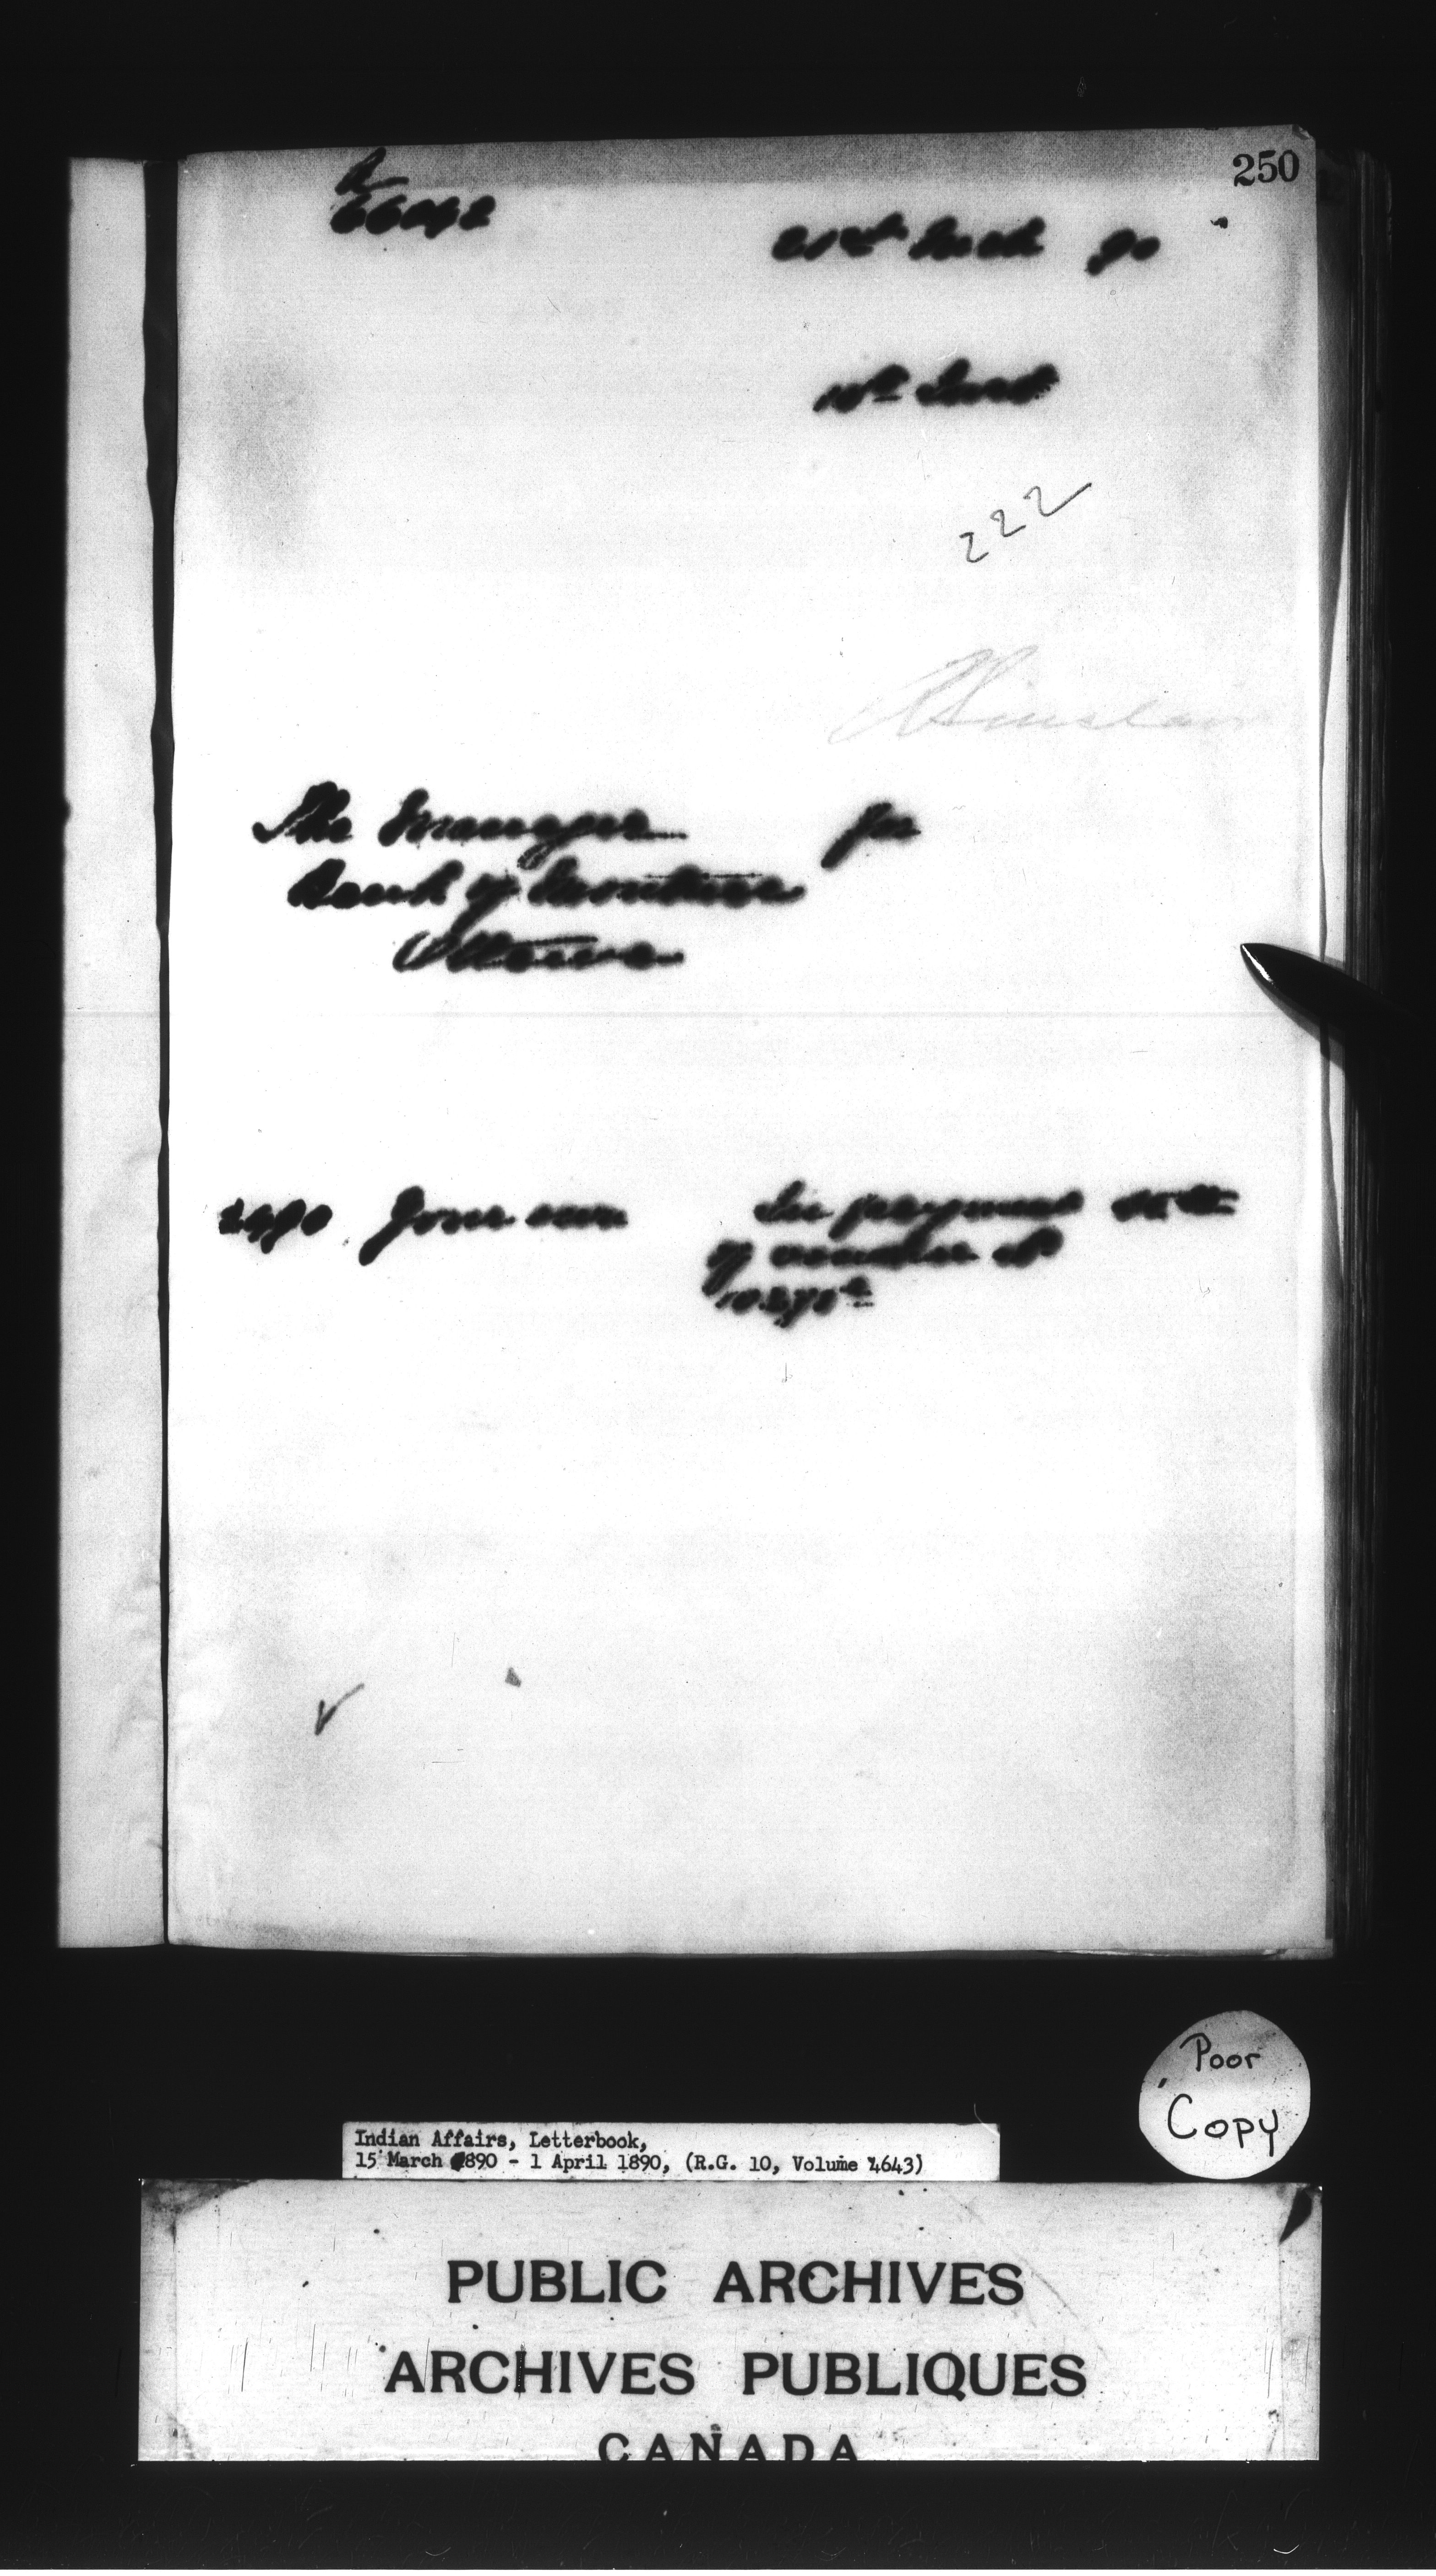 250
66042
21st March 90
10th Inst
222
R Sinclair
The Manager for
Bank of Montreal
Ottawa
2490 Your own In payment
of voucher No
Poor
Copy
Indian Affairs, Letterbook,
15 March 1890 - 1 April 1890, (R.G. 10, Volume 4643)
PUBLIC ARCHIVES
ARCHIVES PUBLIQUES
CANADA